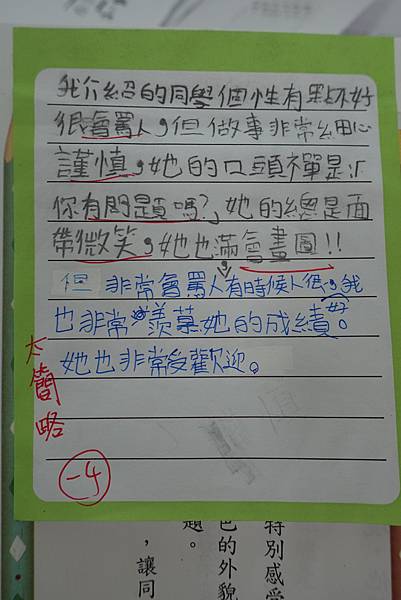 我介紹的同學個性有點不好
很會罵人，但做事非常細心
謹慎，她的口頭禪是「
你有問題嗎？」她的總是面
帶微笑，她也滿會畫圖!!
但 非常會罵人有時候人很 好，我
也非常羨慕她的成績。
她也非常受歡迎。
太簡略
-4
特別感受
色的外貌
題。
，讓同